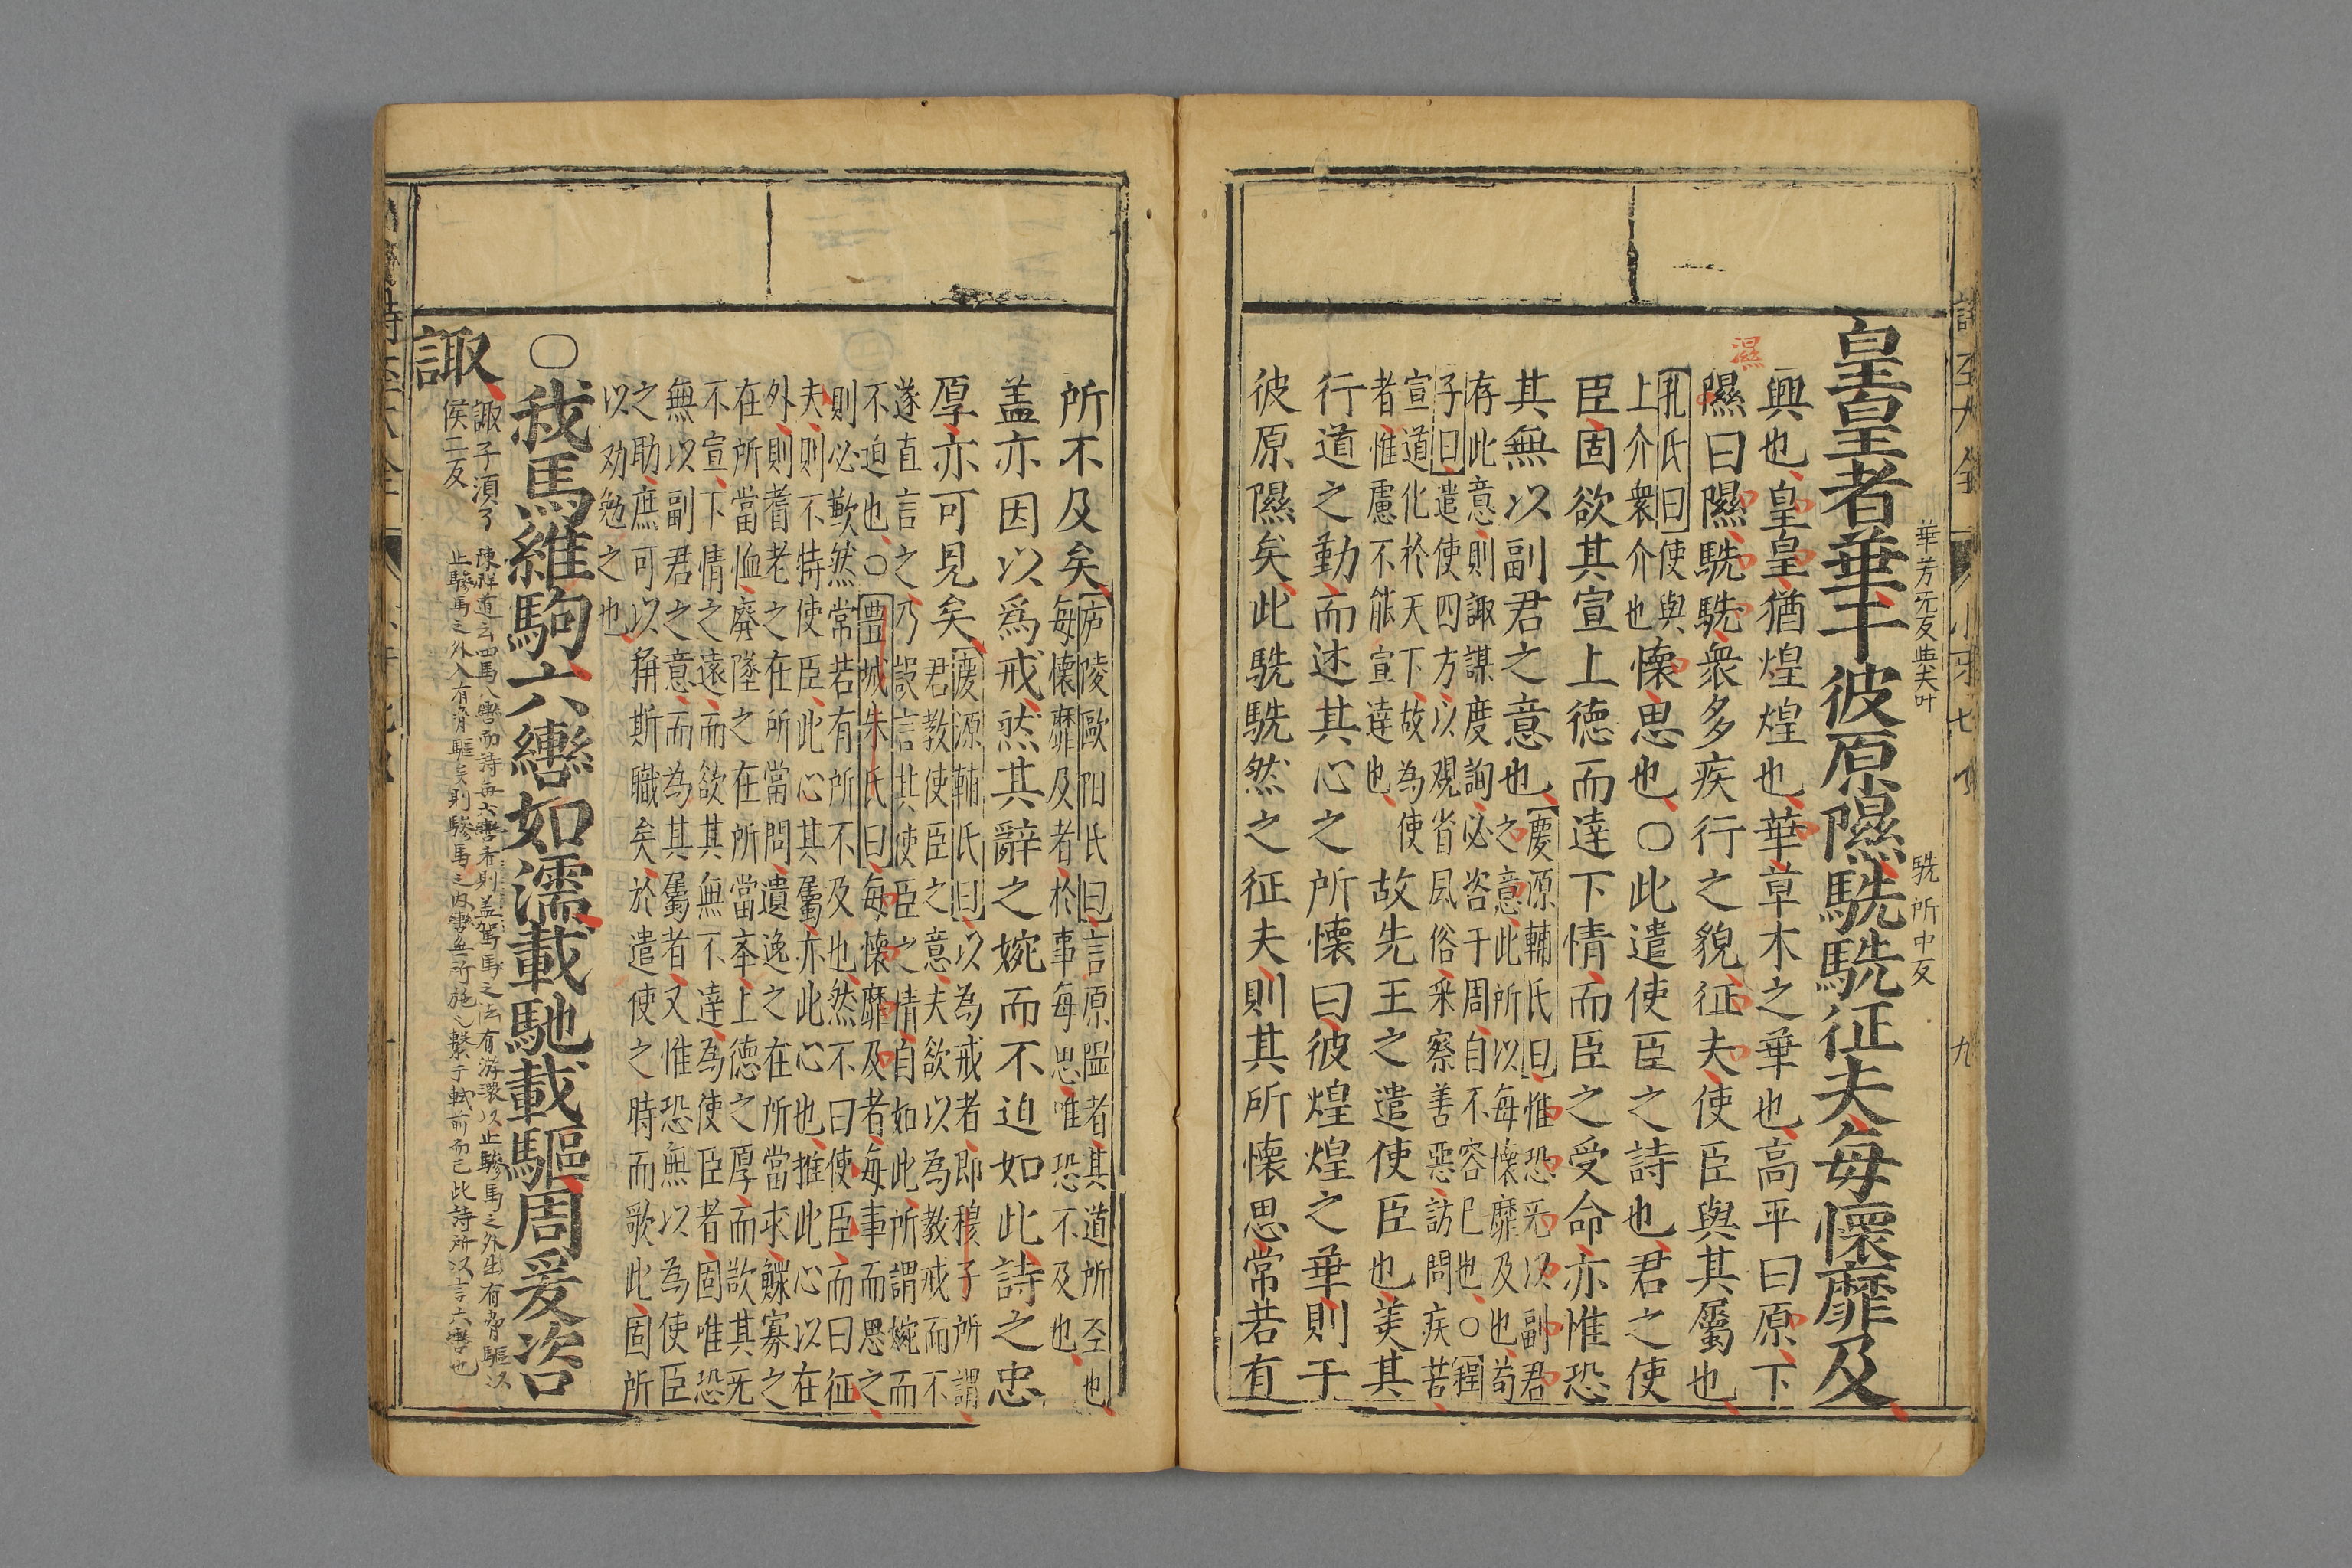 皇皇者華于彼原隰駪駪征夫每懷靡及
華芳无反與夫叶
駪所中反
興也皇皇猶煌煌也華草木之華也高平曰原下
濕
隰曰隰駪駪衆多疾行之貌征夫使臣與其屬也
孔氏曰使與
上介衆介也
懷思也○此遣使臣之詩也君之使
臣固欲其宣上德而達下情而臣之受命亦惟恐
其無以副君之意也
慶源輔氏曰惟恐无以副君
之意此所以每懷靡及也苟
存此意則諏謀度詢必咨于周自不容已也○程
子曰遣使四方以觀省風俗采察善惡訪問疾苦
宣道化於天下故為使
者惟慮不能宣達也
故先王之遣使臣也美其
行道之勤而述其心之所懷曰彼煌煌之華則于
彼原隰矣此駪駪然之征夫則其所懷思常若有
所不及矣
廬陵歐阳氏曰言原隰者其道所至也
每懷靡及者於事每思唯恐不及也
盖亦因以爲戒然其辭之婉而不迫如此詩之忠
厚亦可見矣
慶源輔氏曰以為戒者即穆子所謂
君教使臣之意夫欲以為教戒而不
遂直言之乃設言其使臣之情自如此所謂婉而
不迫也○豊城朱氏曰每懷靡及者每事而思之
則必歉然常若有所不及也然不曰使臣而曰征
夫則不特使臣此心其屬亦此心也推此心以在
外則耆老之在所當問遺逸之在所當求鰥寡之
在所當恤廢墜之在所當举上德之厚而欲其无
不宣下情之遠而欲其無不達為使臣者固唯恐
無以副君之意而為其屬者又惟恐無以為使臣
之助庶可以稱斯職矣於遣使之時而歌此固所
以劝勉之也
○我馬維駒六轡如濡載馳載驅周爰咨
諏
諏子須子
侯二反
陳祥道云四馬八轡而詩每六轡者則盖駕馬之法有游環以止驂馬之外出有脅驅以
止驂馬之外入有脅驅矣則驂馬之内轡無所施乃繫于軾前而已此詩所以言六轡也